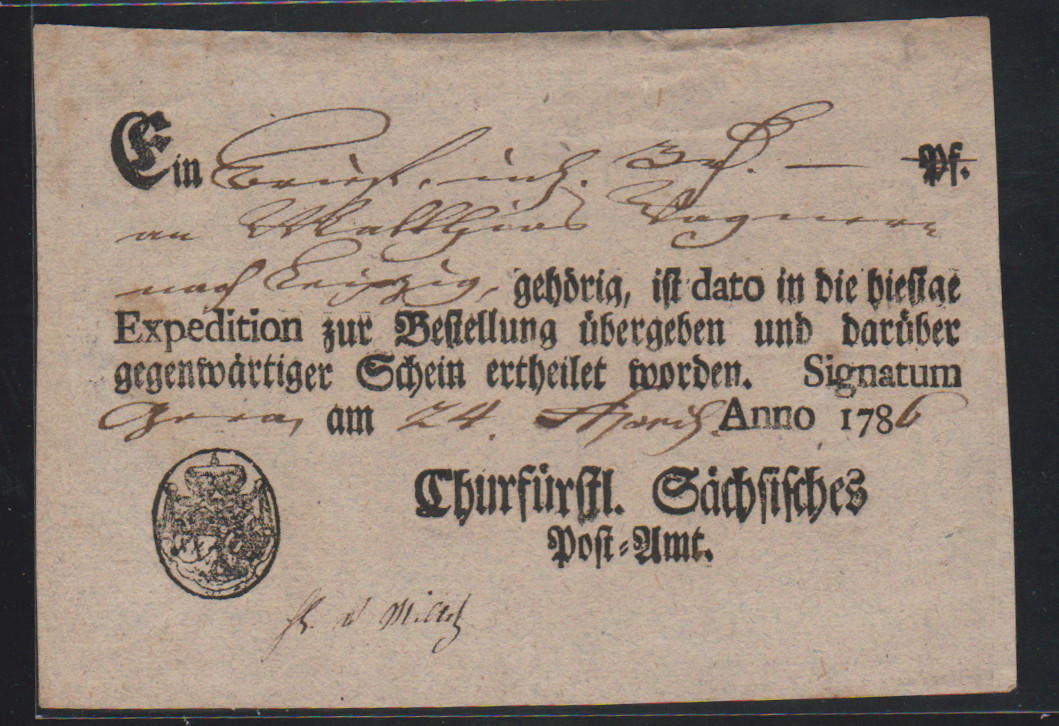 Ein Brief, incl. 3 rℓ. — Pf.
an Matthias Wagnern
nach Leipzig, gehörig, ist dato in die hiesige
Expedition zur Bestellung übergeben und darüber
gegenwärtiger Schein ertheilet worden. Signatum
Gera, am 24. April. Anno 1786
Churfürstl. Sächsisches
Post-Amt.